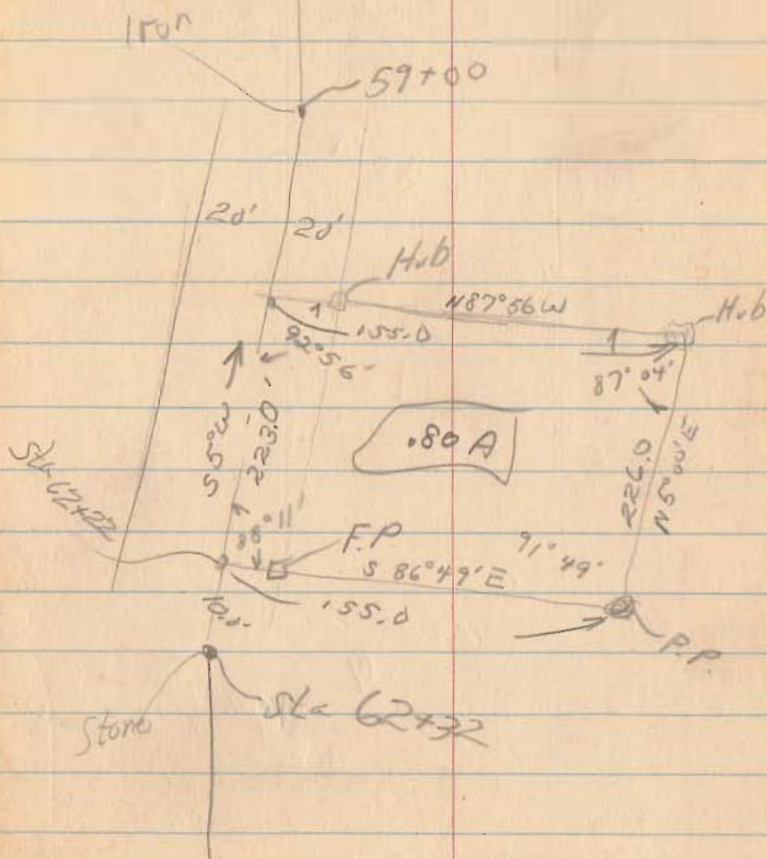 Iron
59+00
20'
20'
Hub
N87°56W
Hub
155.0
92°56'
87°04'
S5°W
223.0'
.80 A
226.0
N5°00'E
Sta 62+22
88°11'
F.P.
S 86°49'E
91°49'
155.0
10.0
P.P.
Stone
Sta 62+32